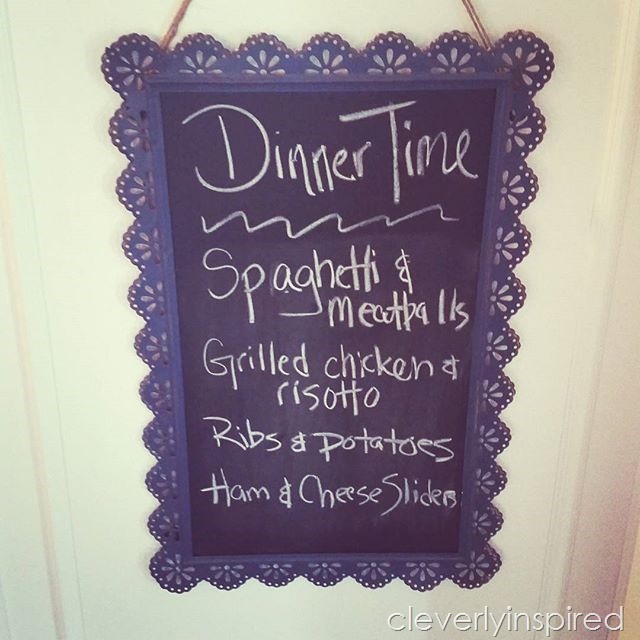 Dinner Time
Spaghetti &
Meatballs
Grilled chicken &
risotto
Ribs & Potatoes
Ham & Cheese Sliders
cleverlyinspired